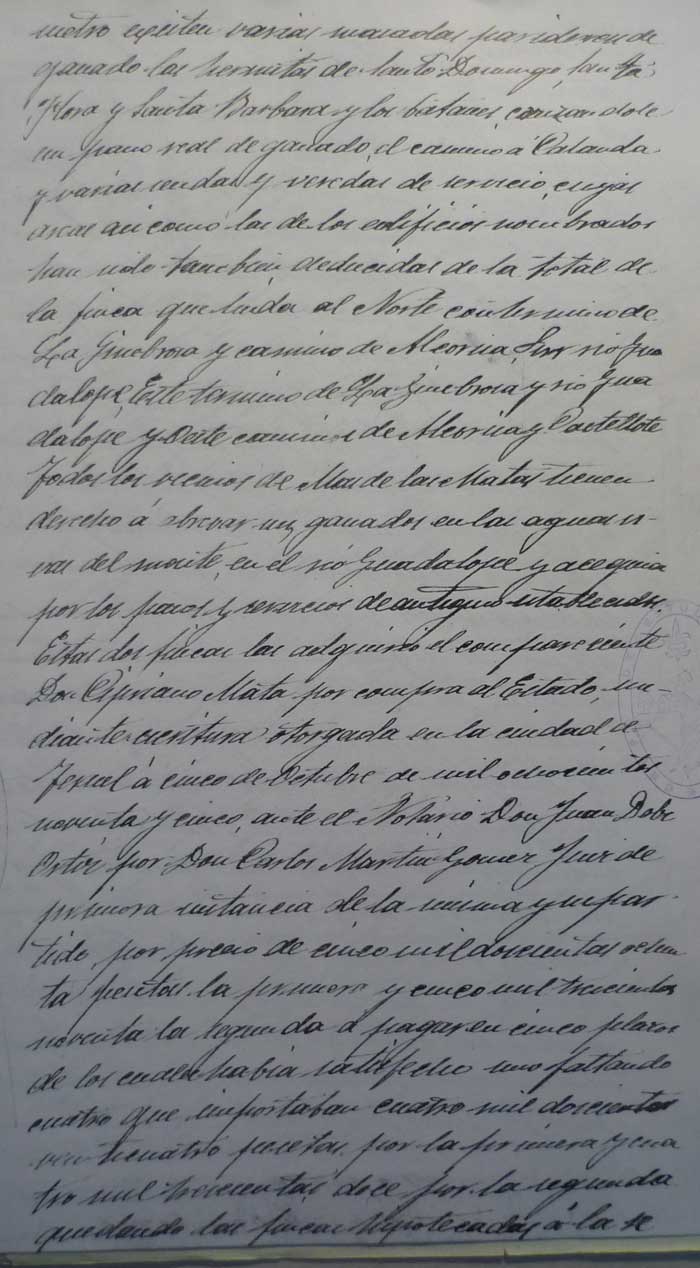 metro existen varias masadas parideras de
ganado las hermitas de Santo Domingo, Santa
Flora y Santa Barbara y los batanes, cruzandole
un paso real de ganado, el camino á Calanda
y varias sendas y veredas de servicio, cuyas
areas asi como las de los edificios nombrados
han sido tambien deducidas de la total de
la finca que linda al Norte con termino de
La Ginebrosa y camino de Alcorisa, Sur rio Gua
dalope, Este termino de La Ginebrosa y rio Gua
dalope y Oeste caminos de Alcorisa y Castellote
Todos los vecinos de Mas de las Matas tienen
derecho á abrevar sus ganados en las aguas vi-
vas del monte, en el rio Guadalope y acequia
por los pasos y servicios de antiguo establecidos.
Estas dos fincas las adquirió el compareciente
Don Cipriano Mata por compra al Estado, me-
diante escritura otorgada en la ciudad de
Teruel á cinco de Octubre de mil ochocientos
noventa y cinco, ante el Notario Don Juan
por Don Carlos Martin Gomez Juez de
primera instancia de la misma y su par-
tido, por precio de cinco mil doscientas ochen
ta pesetas la primera y cinco mil trescientas
noventa la segunda á pagar en cinco plazos
de los cuales habia satisfecho uno faltando
cuatro que importaban cuatro mil doscientas
veinticuatro pesetas por la primera y cua
tro mil trescientas doce por la segunda
quedando las fincas hipotecadas á la se